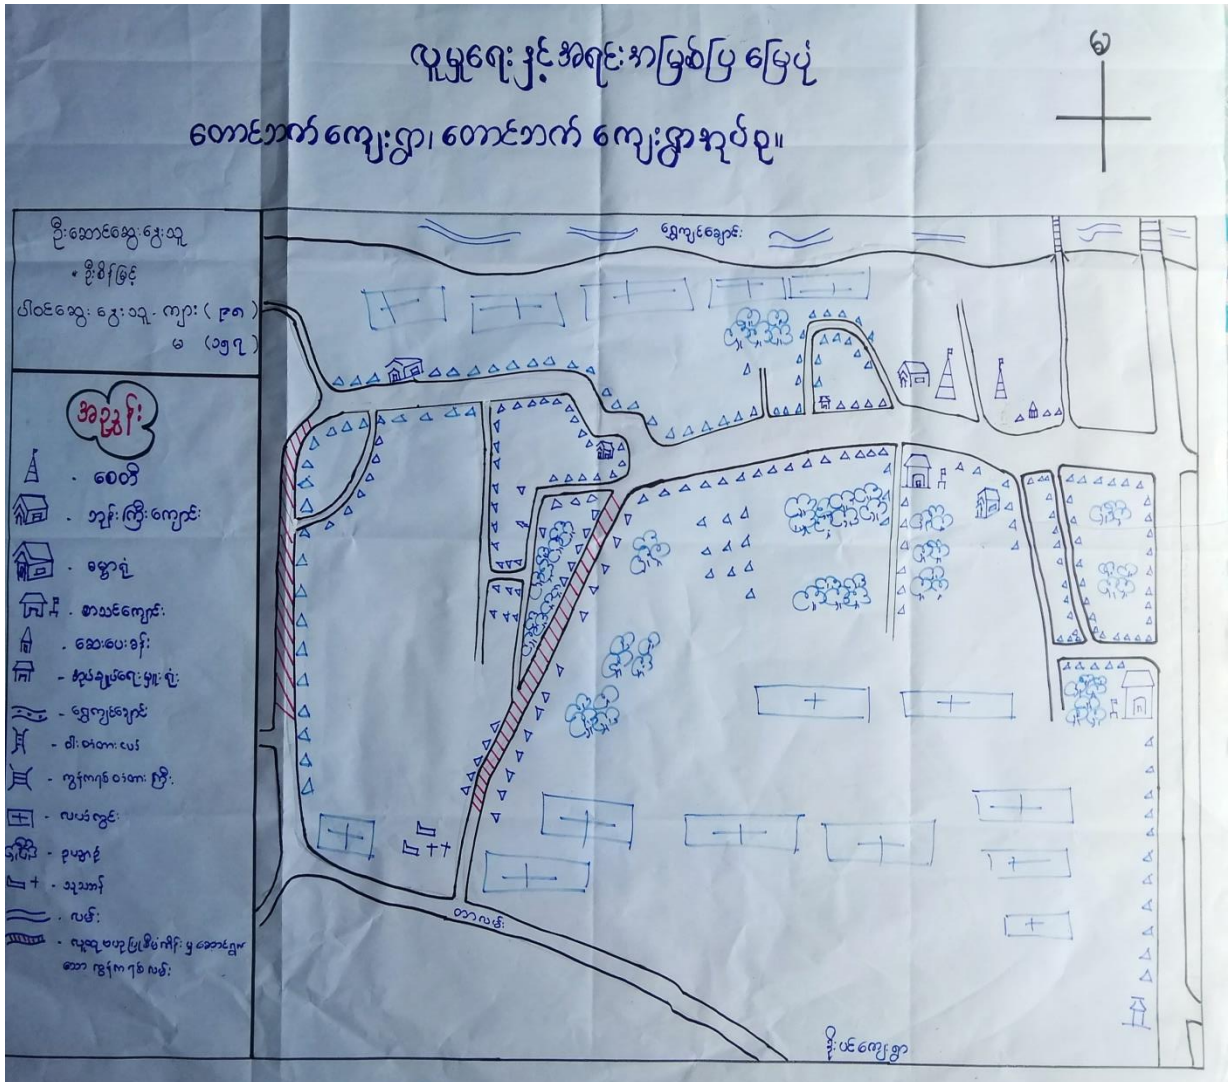 လူမှုရေးနှင့်အရင်းအမြစ်ပြ မြေပုံ
တောင်ဘက်ကျေးရွာ၊ တောင်ဘက် ကျေးရွာအုပ်စု။
ဦးဆောင်ဆွေးနွေးသူ
• ဦးစိန်မြင့်
ပါဝင်ဆွေးနွေးသူ - ကျား ( ၉၈ )
မ (၁၅၇)
အညွှန်း
- စေတီ
- ဘုန်းကြီးကျောင်း
- ဓမ္မာရုံ
- စာသင်ကျောင်း
- ဆေးပေးခန်း
- အုပ်ချုပ်ရေးမှူးရုံး
- ရွှေကျင်ချောင်း
- ဝါးတံတားပေါ်
- ကွန်ကရစ်တံတားကြီး
- လယ်ကွင်း
- ဥယျာဉ်
- သုသာန်
- လမ်း
- လူထုဗဟိုပြုစီမံကိန်းမှ ဆောင်ရွက်
သော ကွန်ကရစ်လမ်း
ရွှေကျင်ချောင်း
တာလမ်း
ဒိုးပင်ကျေးရွာ